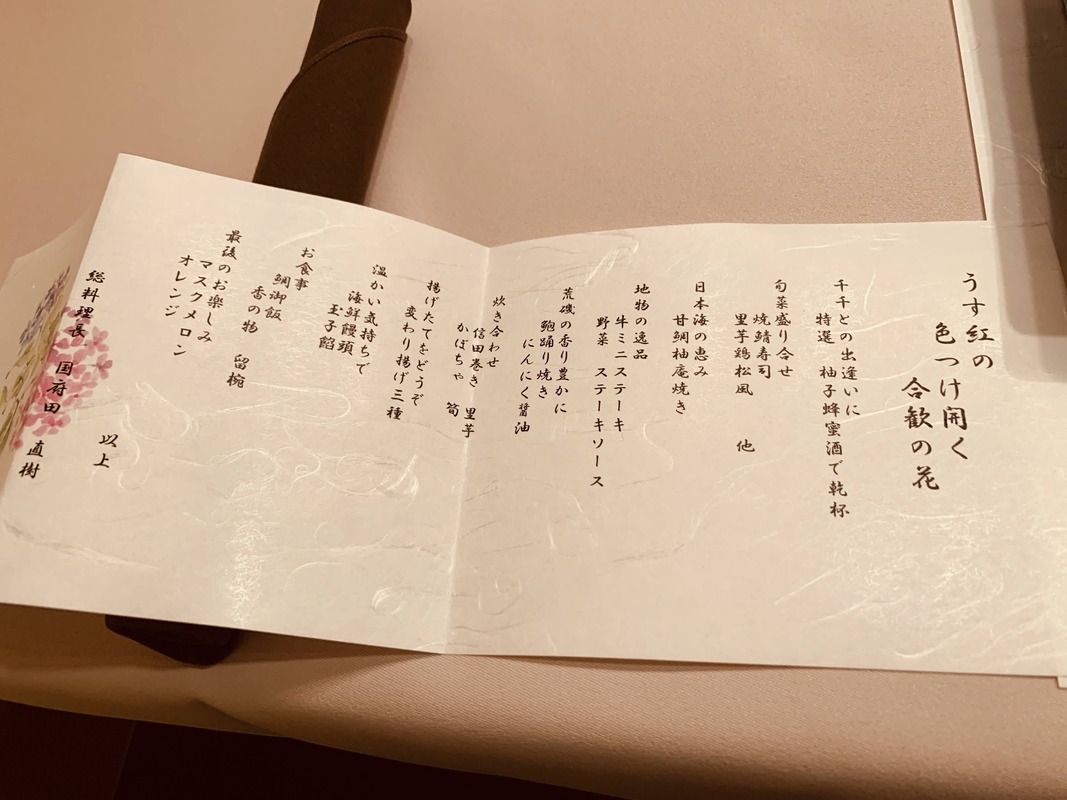 うす紅の
色つけ開く
合歓の花
千千との出逢いに
特選 柚子蜂蜜酒で乾杯
旬菜盛り合せ
焼鯖寿司
里芋鶏松風 他
日本海の恵み
甘鯛柚庵焼き
地物の逸品
牛ミニステーキ
野菜 ステーキソース
荒磯の香り豊かに
鮑踊り焼き
にんにく醤油
炊き合わせ
信田巻き 里芋
かぼちゃ 筍
揚げたてをどうぞ
変わり揚げ三種
温かい気持ちで
海鮮饅頭
玉子餡
お食事
鯛御飯
香の物 留椀
最後のお楽しみ
マスクメロン
オレンジ
以上
総料理長 国府田 直樹